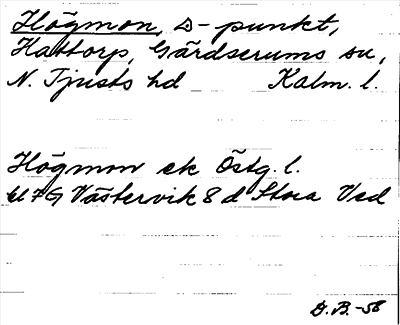 Högmon, △-punkt,
Hattorp, Gärdserums sn,
N. Tjusts hd Kalm. l.
Högmon ek Östg. l.
bl 7G Västervik 8 d Stora Ved
D.B.-58